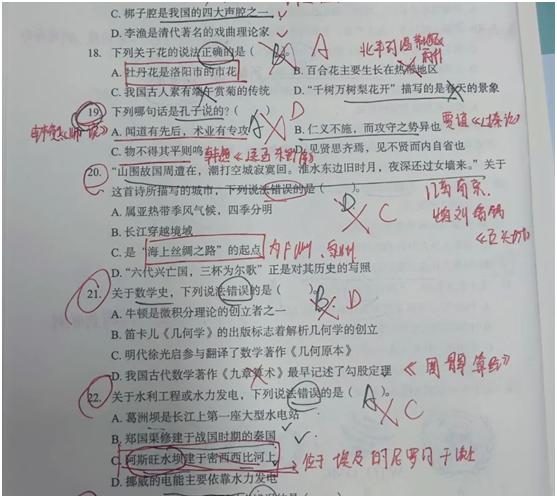 C. 梆子腔是我国的四大声腔之一
D. 李渔是清代著名的戏曲理论家
18. 下列关于花的说法正确的是( B )。 A
A. 牡丹花是洛阳市的市花 B. 百合花主要生长在热带地区
C. 我国古人素有端午赏菊的传统 D. “千树万树梨花开”描写的是春天的景象
19. 下列哪句话是孔子说的?( A ) D
A. 闻道有先后,术业有专攻 B. 仁义不施,而攻守之势异也 贾谊《过秦论》
C. 物不得其平则鸣 韩愈 D. 见贤思齐焉,见不贤而内自省也
20. “山围故国周遭在,潮打空城寂寞回。淮水东边旧时月,夜深还过女墙来。”关于
这首诗所描写的城市,下列说法错误的是( D )。 C
A. 属亚热带季风气候,四季分明
B. 长江穿越境域
C. 是“海上丝绸之路”的起点
D. “六代兴亡国,三杯为尔歌”正是对其历史的写照
21. 关于数学史,下列说法错误的是( B )。 D
A. 牛顿是微积分理论的创立者之一
B. 笛卡儿《几何学》的出版标志着解析几何学的创立
C. 明代徐光启参与翻译了数学著作《几何原本》
D. 我国古代数学著作《九章算术》最早记述了勾股定理 《周髀算经》
22. 关于水利工程或水力发电,下列说法错误的是( A )。 C
A. 葛洲坝是长江上第一座大型水电站
B. 郑国渠修建于战国时期的秦国
C. 阿斯旺水坝建于密西西比河上 位于埃及的尼罗河干流上
D. 挪威的电能主要依靠水力发电